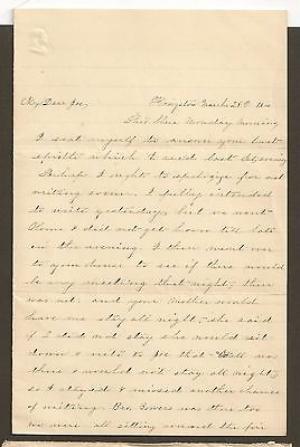 My Dear Joe,
Kingston March 28th
This Monday Morning
I seat myself to answer your last
epistle which I rec'd last
Perhaps I ought to apologize for not
writing sooner. I fully intended
to write yesterday, but we went
Home & did not get down till late
in the evening. I then went over
to your house to see if there would
be any meeting that night, there
was not. and your Mother would
have me stay all night, she said
if I did not stay she would sit
down & write to Joe that
there & would not stay all night
so I stayed & missed another chance
of writing. Bro. Bowers was there too
we were all sitting around the fire